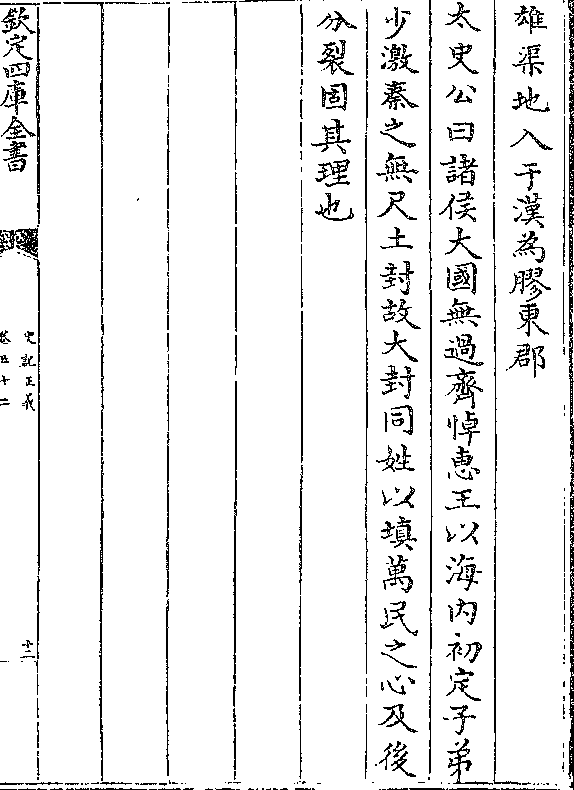 雄渠地入于漢為膠東郡
太史公曰諸侯大國無過齊悼惠王以海內初定子弟
少激秦之無尺土封故大封同姓以填萬民之心及後
分裂固其理也
欽定四庫全書
史記正義
卷五十二
十二